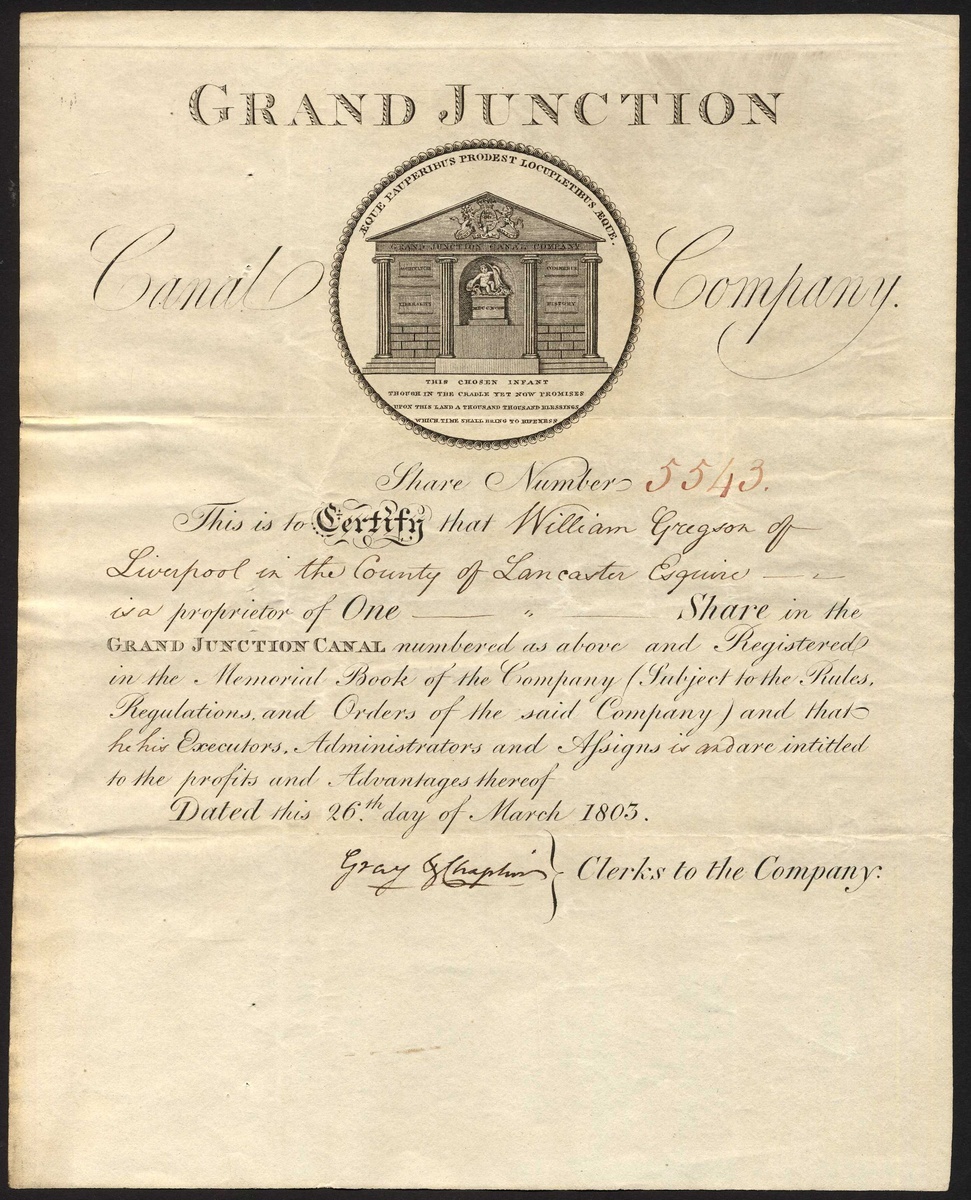 GRAND JUNCTION
ÆQUE PAUPERIBUS PRODEST LOCUPLETIBUS ÆQUE.
Canal Company.
GRAND JUNCTION CANAL COMPANY
COMMERCE
HISTORY
THIS CHOSEN INFANT
THOUGH IN THE CRADLE YET NOW PROMISES
UPON THIS LAND A THOUSAND THOUSAND BLESSINGS
WHICH TIME SHALL BRING TO RIPENESS
Share Number 5543.
This is to Certify that William Gregson of
Liverpool in the County of Lancaster Esquire
is a proprietor of One Share in the
GRAND JUNCTION CANAL numbered as above and Registered
in the Memorial Book of the Company (Subject to the Rules,
Regulations, and Orders of the said Company) and that
he his Executors, Administrators and Aſsigns is and are intitled
to the profits and Advantages thereof
Dated this 26.th day of March 1803.
Gray & Chaplin } Clerks to the Company.